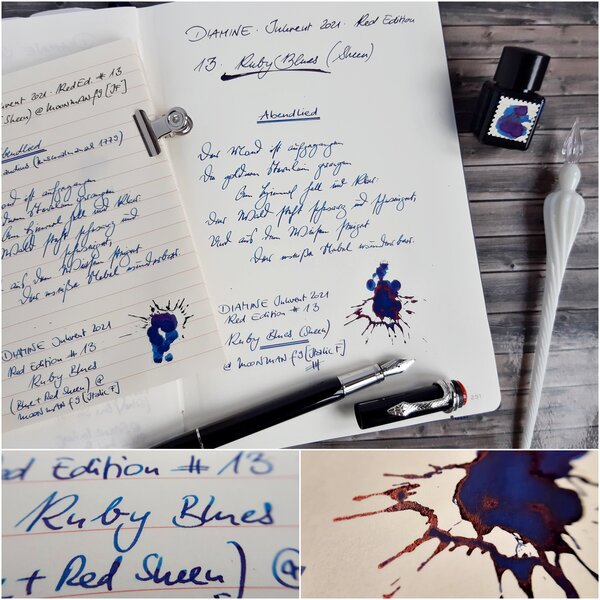 DIAMINE · Inkvent 2021 · Red Edition
13. Ruby Blues (Sheen)
Abendlied
Der Mond ist aufgegangen
Die goldnen Sternlein prangen
Am Himmel hell und klar.
Der Wald steht schwarz und schweiget,
Und aus den Wiesen steiget
Der weiße Nebel wunderbar.
DIAMINE Inkvent 2021
Red Edition # 13
Ruby Blues (Sheen)
@ MOONMAN f9 [Italic F]
251
vent 2021 · Red Ed. # 13
Sheen) @ MOONMAN f9 [F]
bendlied
nd ist aufgegangen
dnen Sternlein prangen
Himmel hell und klar.
Wald steht schwarz und
schweiget,
aus den Wiesen steiget
Der weiße Nebel wunderbar.
DIAMINE Inkvent 2021
Red Edition # 13
Ruby Blues
(Blue + Red Sheen) @
MOONMAN f9 [Italic F]
ed Edition # 13
Ruby Blues
e + Red Sheen) @